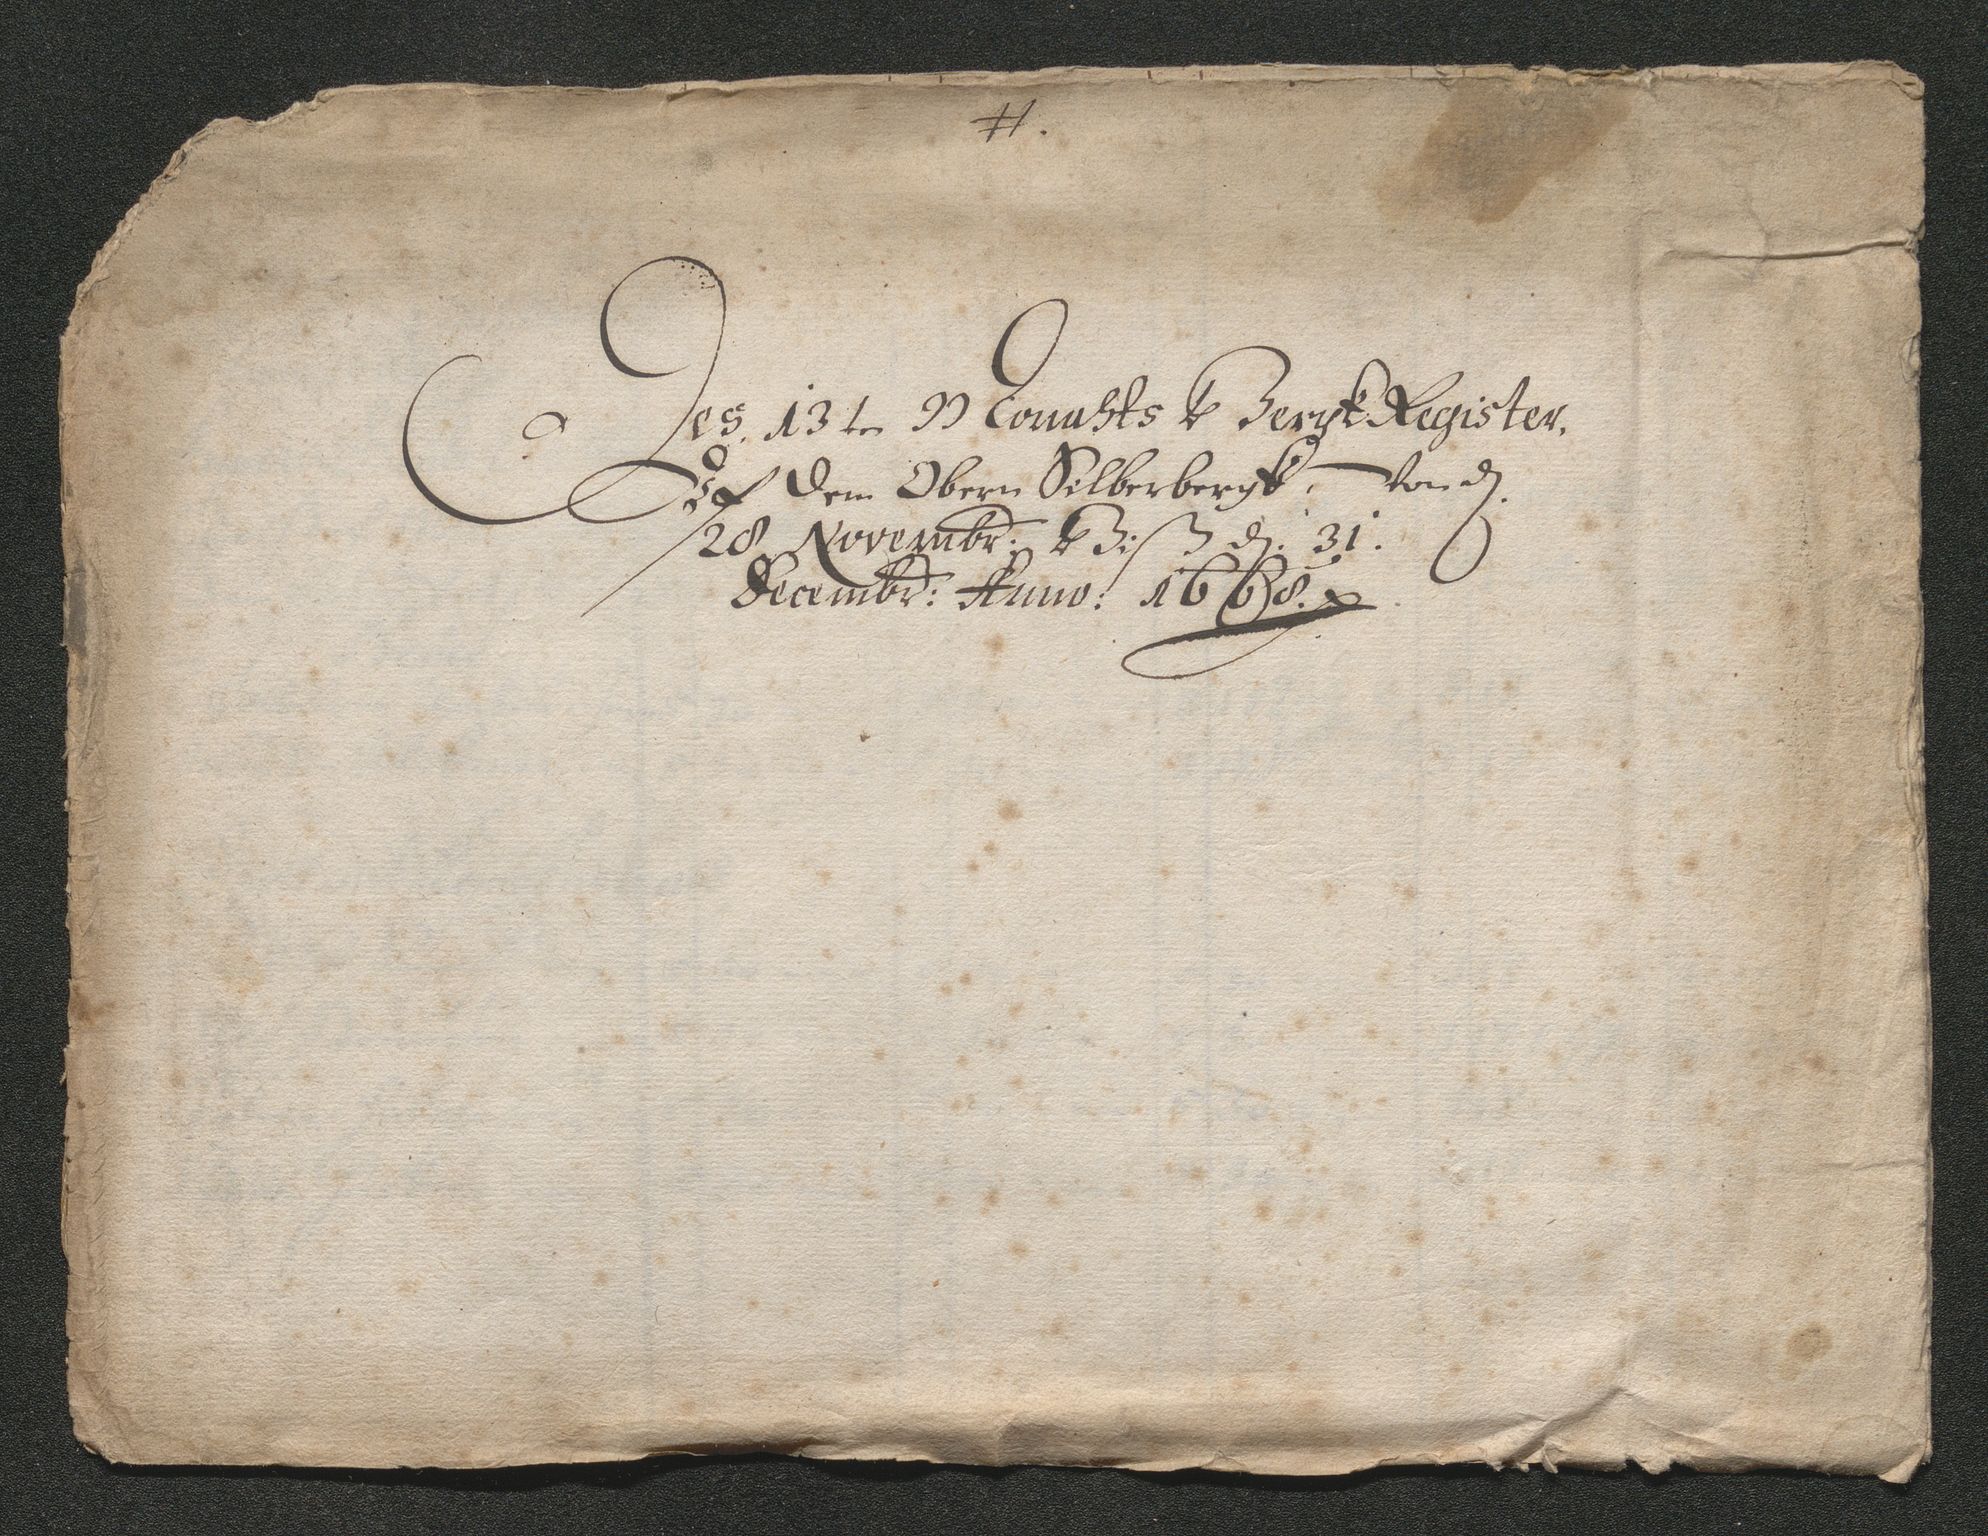 H.
Des. 13ten Monahts Bergk Register.
Uf dem Obern Silberbergk, Von d.
28 Novembr: Biß d. 31.
Decembr: Anno: 1668.